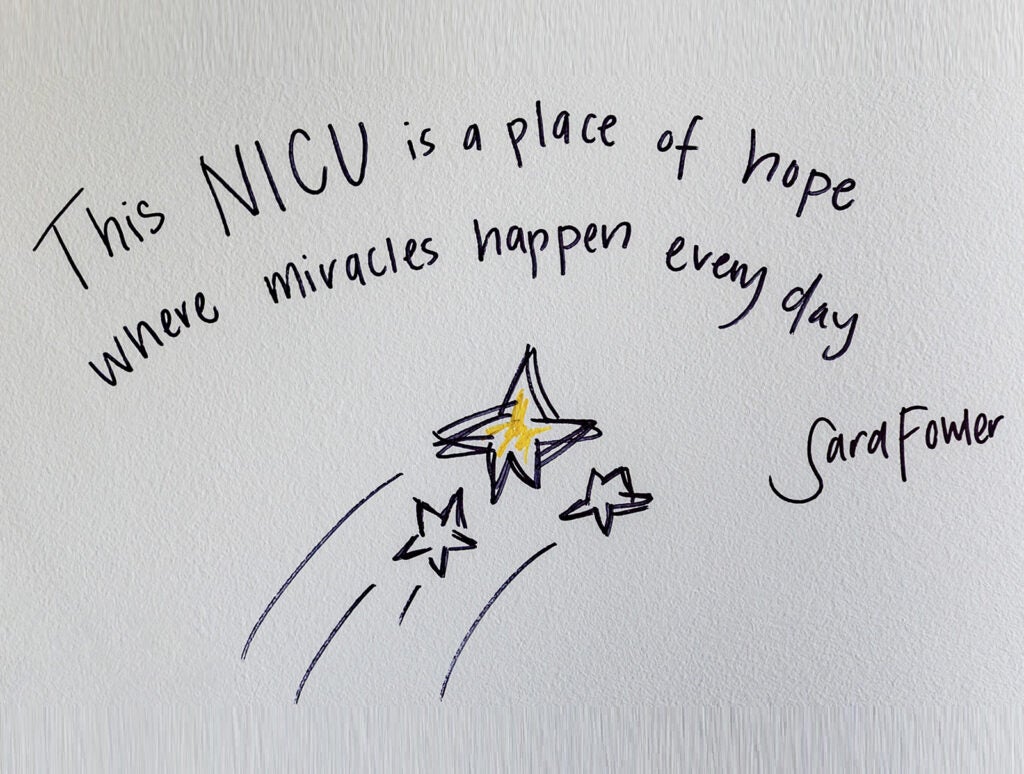 This NICU is a place of hope
where miracles happen every day
Sara Fowler